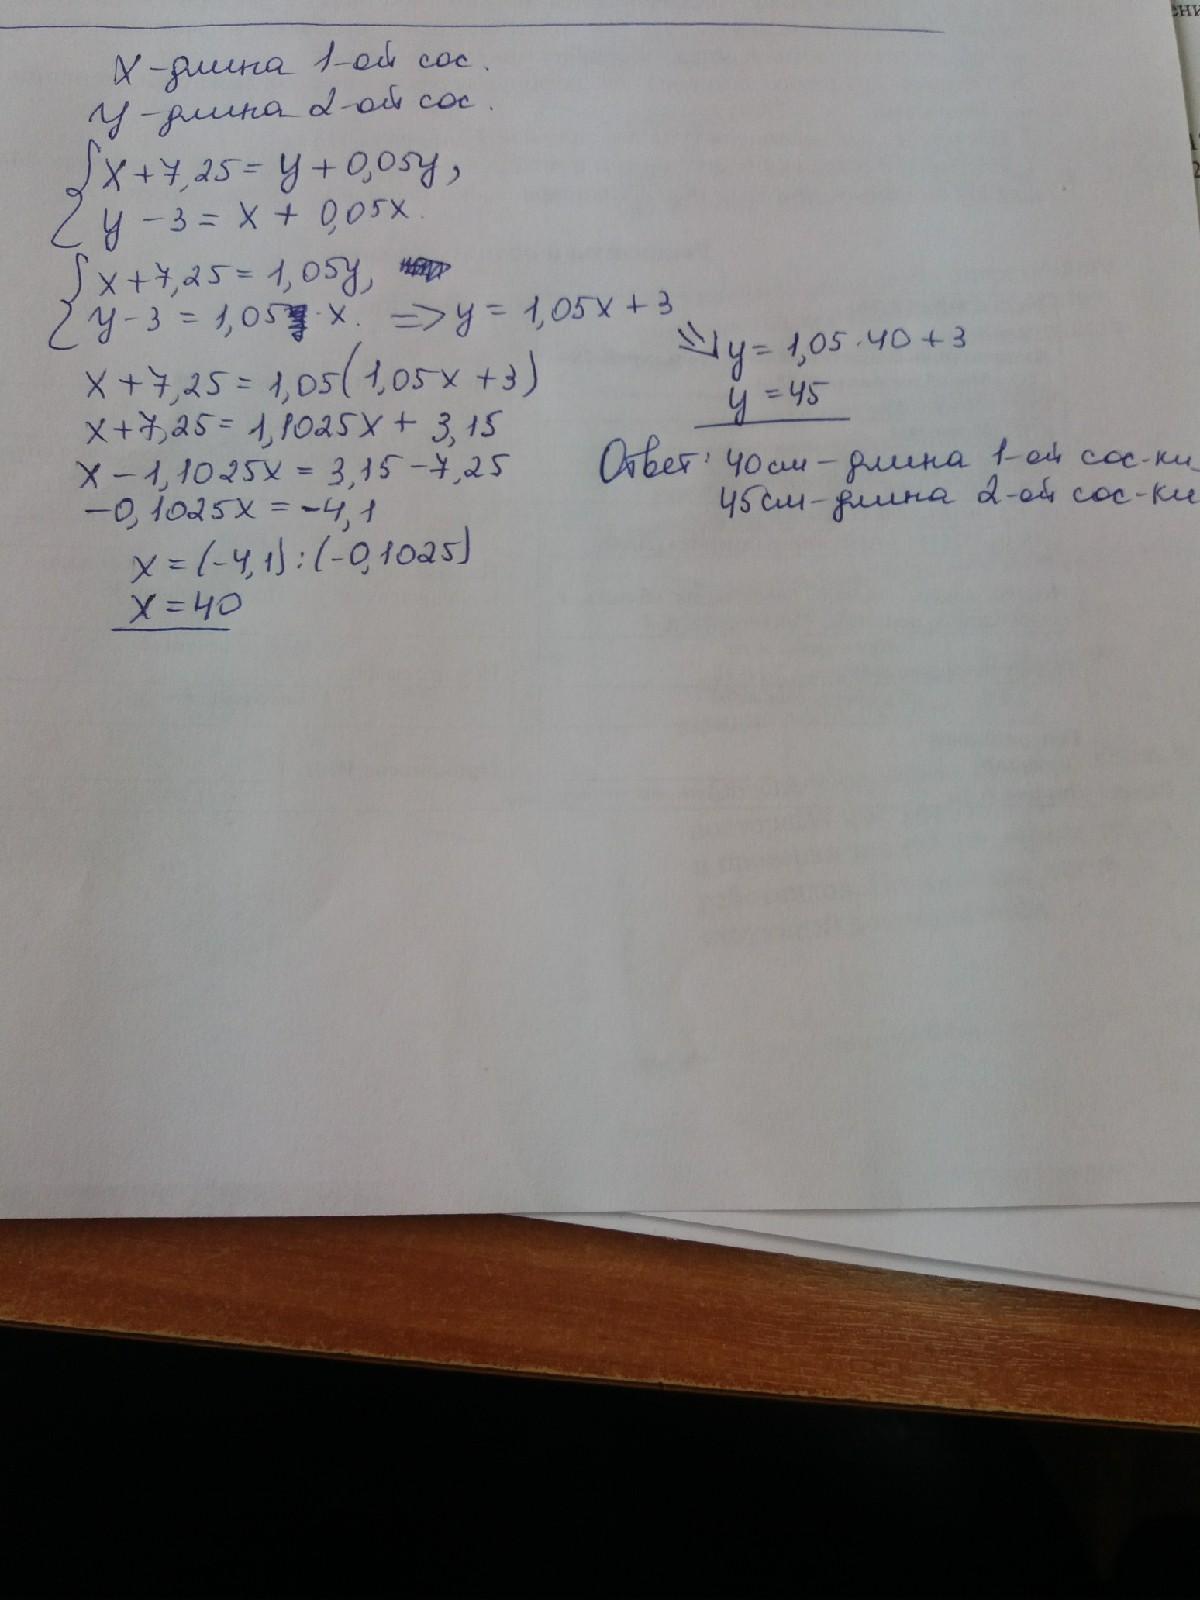 X-длина 1-ой сос.
У-длина 2-ой сос.
{x+7,25=y+0,05y,
y-3=x+0,05x.
{x+7,25=1,05y,
y-3=1,05·x. => y=1,05x+3
x+7,25=1,05(1,05x+3)
x+7,25=1,1025x+3,15
x-1,1025x=3,15-7,25
-0,1025x=-4,1
x=(-4,1):(-0,1025)
x=40
=> y=1,05·40+3
y=45
Ответ: 40см-длина 1-ой сос-ки
45см-длина 2-ой сос-ки